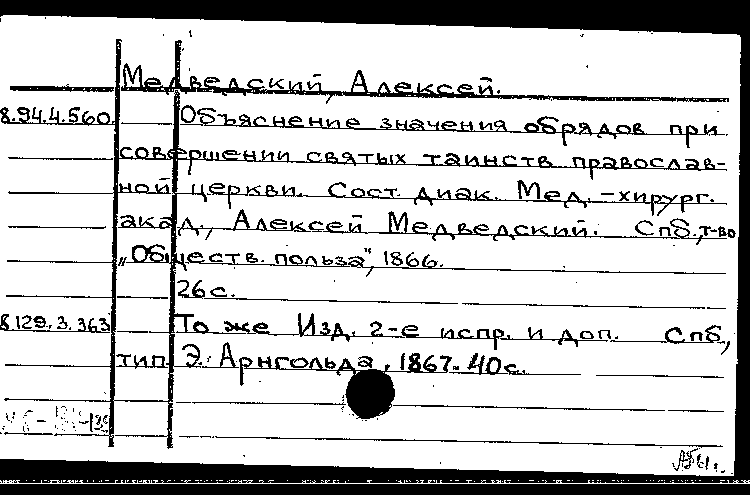 Медведский, Алексей.
8.94.4.560. Объяснение значения обрядов при
совершении святых таинств православ-
ной церкви. Сост. диак. Мед.-хирург.
акад., Алексей Медведский. Спб., т-во
„Обществ. польза", 1866.
26 с.
8.129.3.363 То же Изд. 2-е испр. и доп. Спб,
тип. Э. Арнгольда, 1867. 40 с.